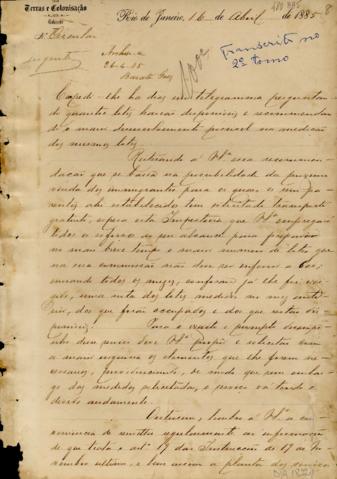 Terras e Colonisação
Rio de Janeiro, 16 de Abril de 1885
Circular
Archive
26-4-85
Barato
Transcrito no
2º tomo
Expedi-lhe ha dias um telegramma perguntan-
do quantos lotes havia disponiveis e recommendan-
do o maior desenvolvimento possivel na medição
dos mesmos lotes.
Reiterando a Vª essa recommen-
dação que se baseia na possibilidade da proxima
vinda de immigrantes para os quaes os seus pa-
rentes ahi estabelecidos tem solicitado transporte
gratuito, espera esta Inspectoria que Vª empregará
todos os esforços ao seu alcance para preparar
no mais breve tempo o maior numero de lotes que
na sua commissão não deve ser inferior a
enviando todos os mezes, conforme já lhe foi exi-
gido, uma nota dos lotes medidos no mez ante-
rior, dos que forão occupados e dos que restão dis-
poniveis. Para o exacto e prompto desempe-
nho deve Vª propor e solicitar com
a maior urgencia os elementos que lhe forem ne-
cessarios, providenciando, de modo que sem embar-
go das medidas solicitadas, o serviço vá tendo o
devido andamento.
Outrosim, lembro a Vª a con-
veniencia de remetter regularmente as informações
de que trata o artº 17 das Instrucções de 17 de No-
vembro ultimo, e bem assim a planta dos